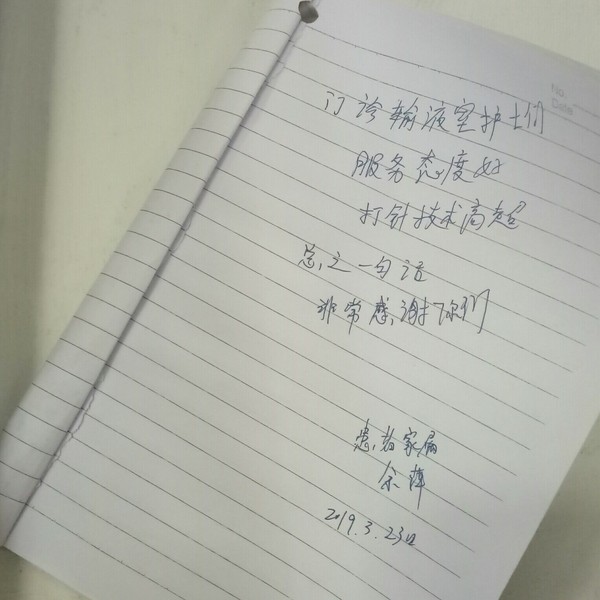 No.
Date
门诊输液室护士们
服务态度好
打针技术高超
总之一句话
非常感谢你们
患者家属
余萍
2019.3.23日